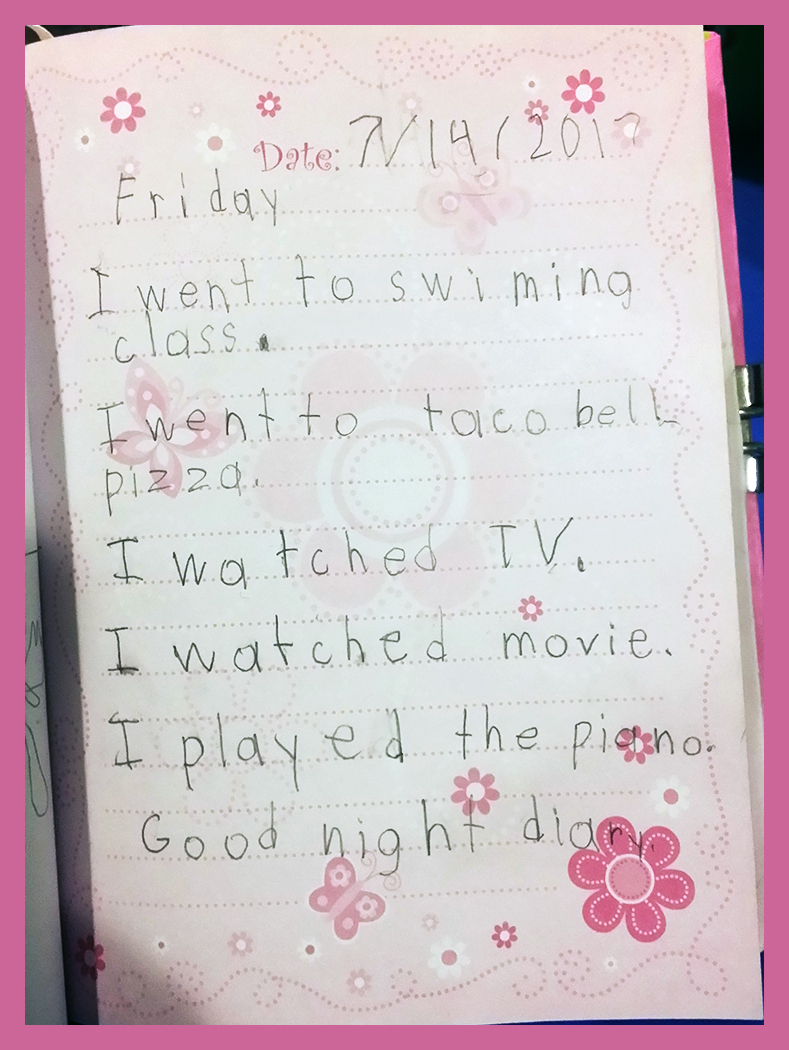 Date: 7/14/2017
Friday
I went to swiming
class.
I went to taco bell
pizza.
I watched TV.
I watched movie.
I played the piano.
Good night diary.